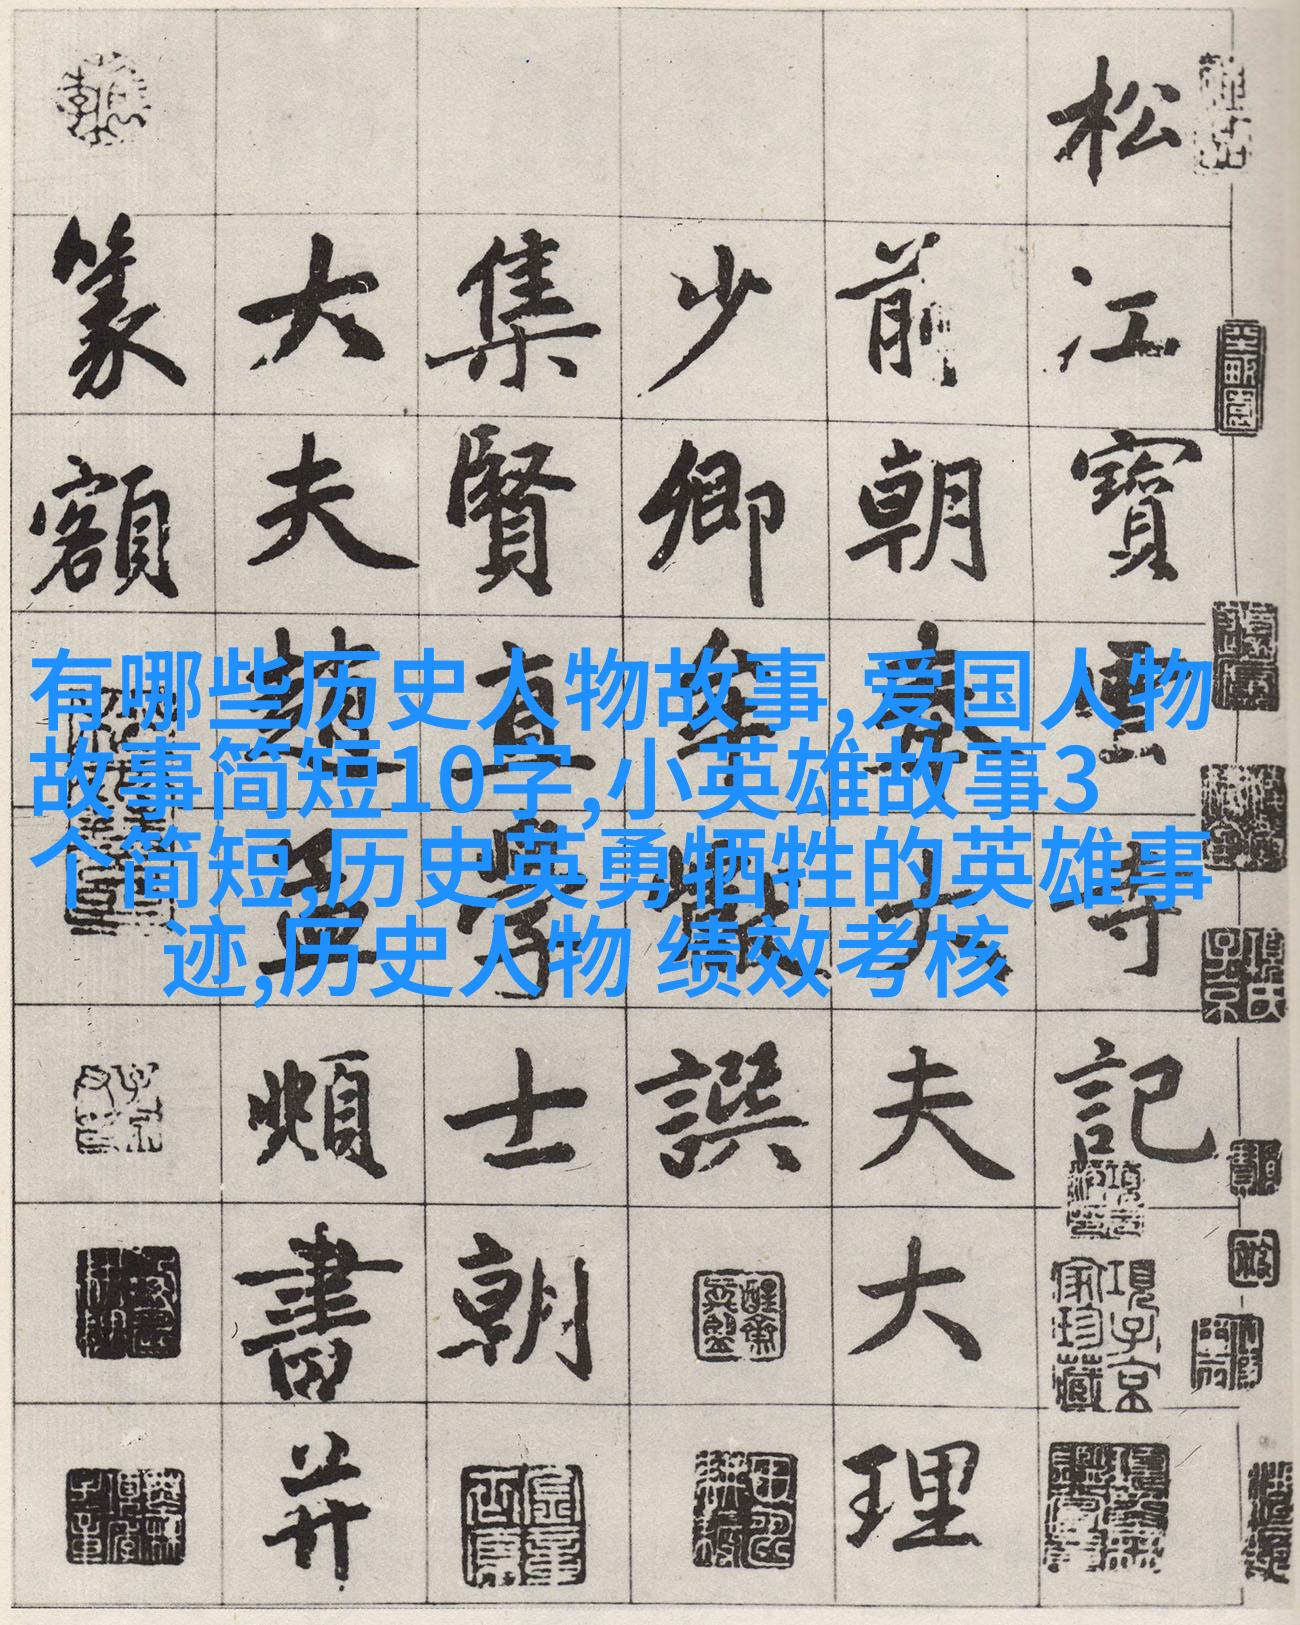 松江寶雲寺記
前朝奉大夫大理
少卿牟巘撰
集賢直學士朝
大夫趙孟頫書并
篆額
項子京
家珍藏
有哪些历史人物故事,爱国人物
故事简短10字,小英雄故事3
个简短,历史英勇牺牲的英雄事
迹,历史人物 绩效考核